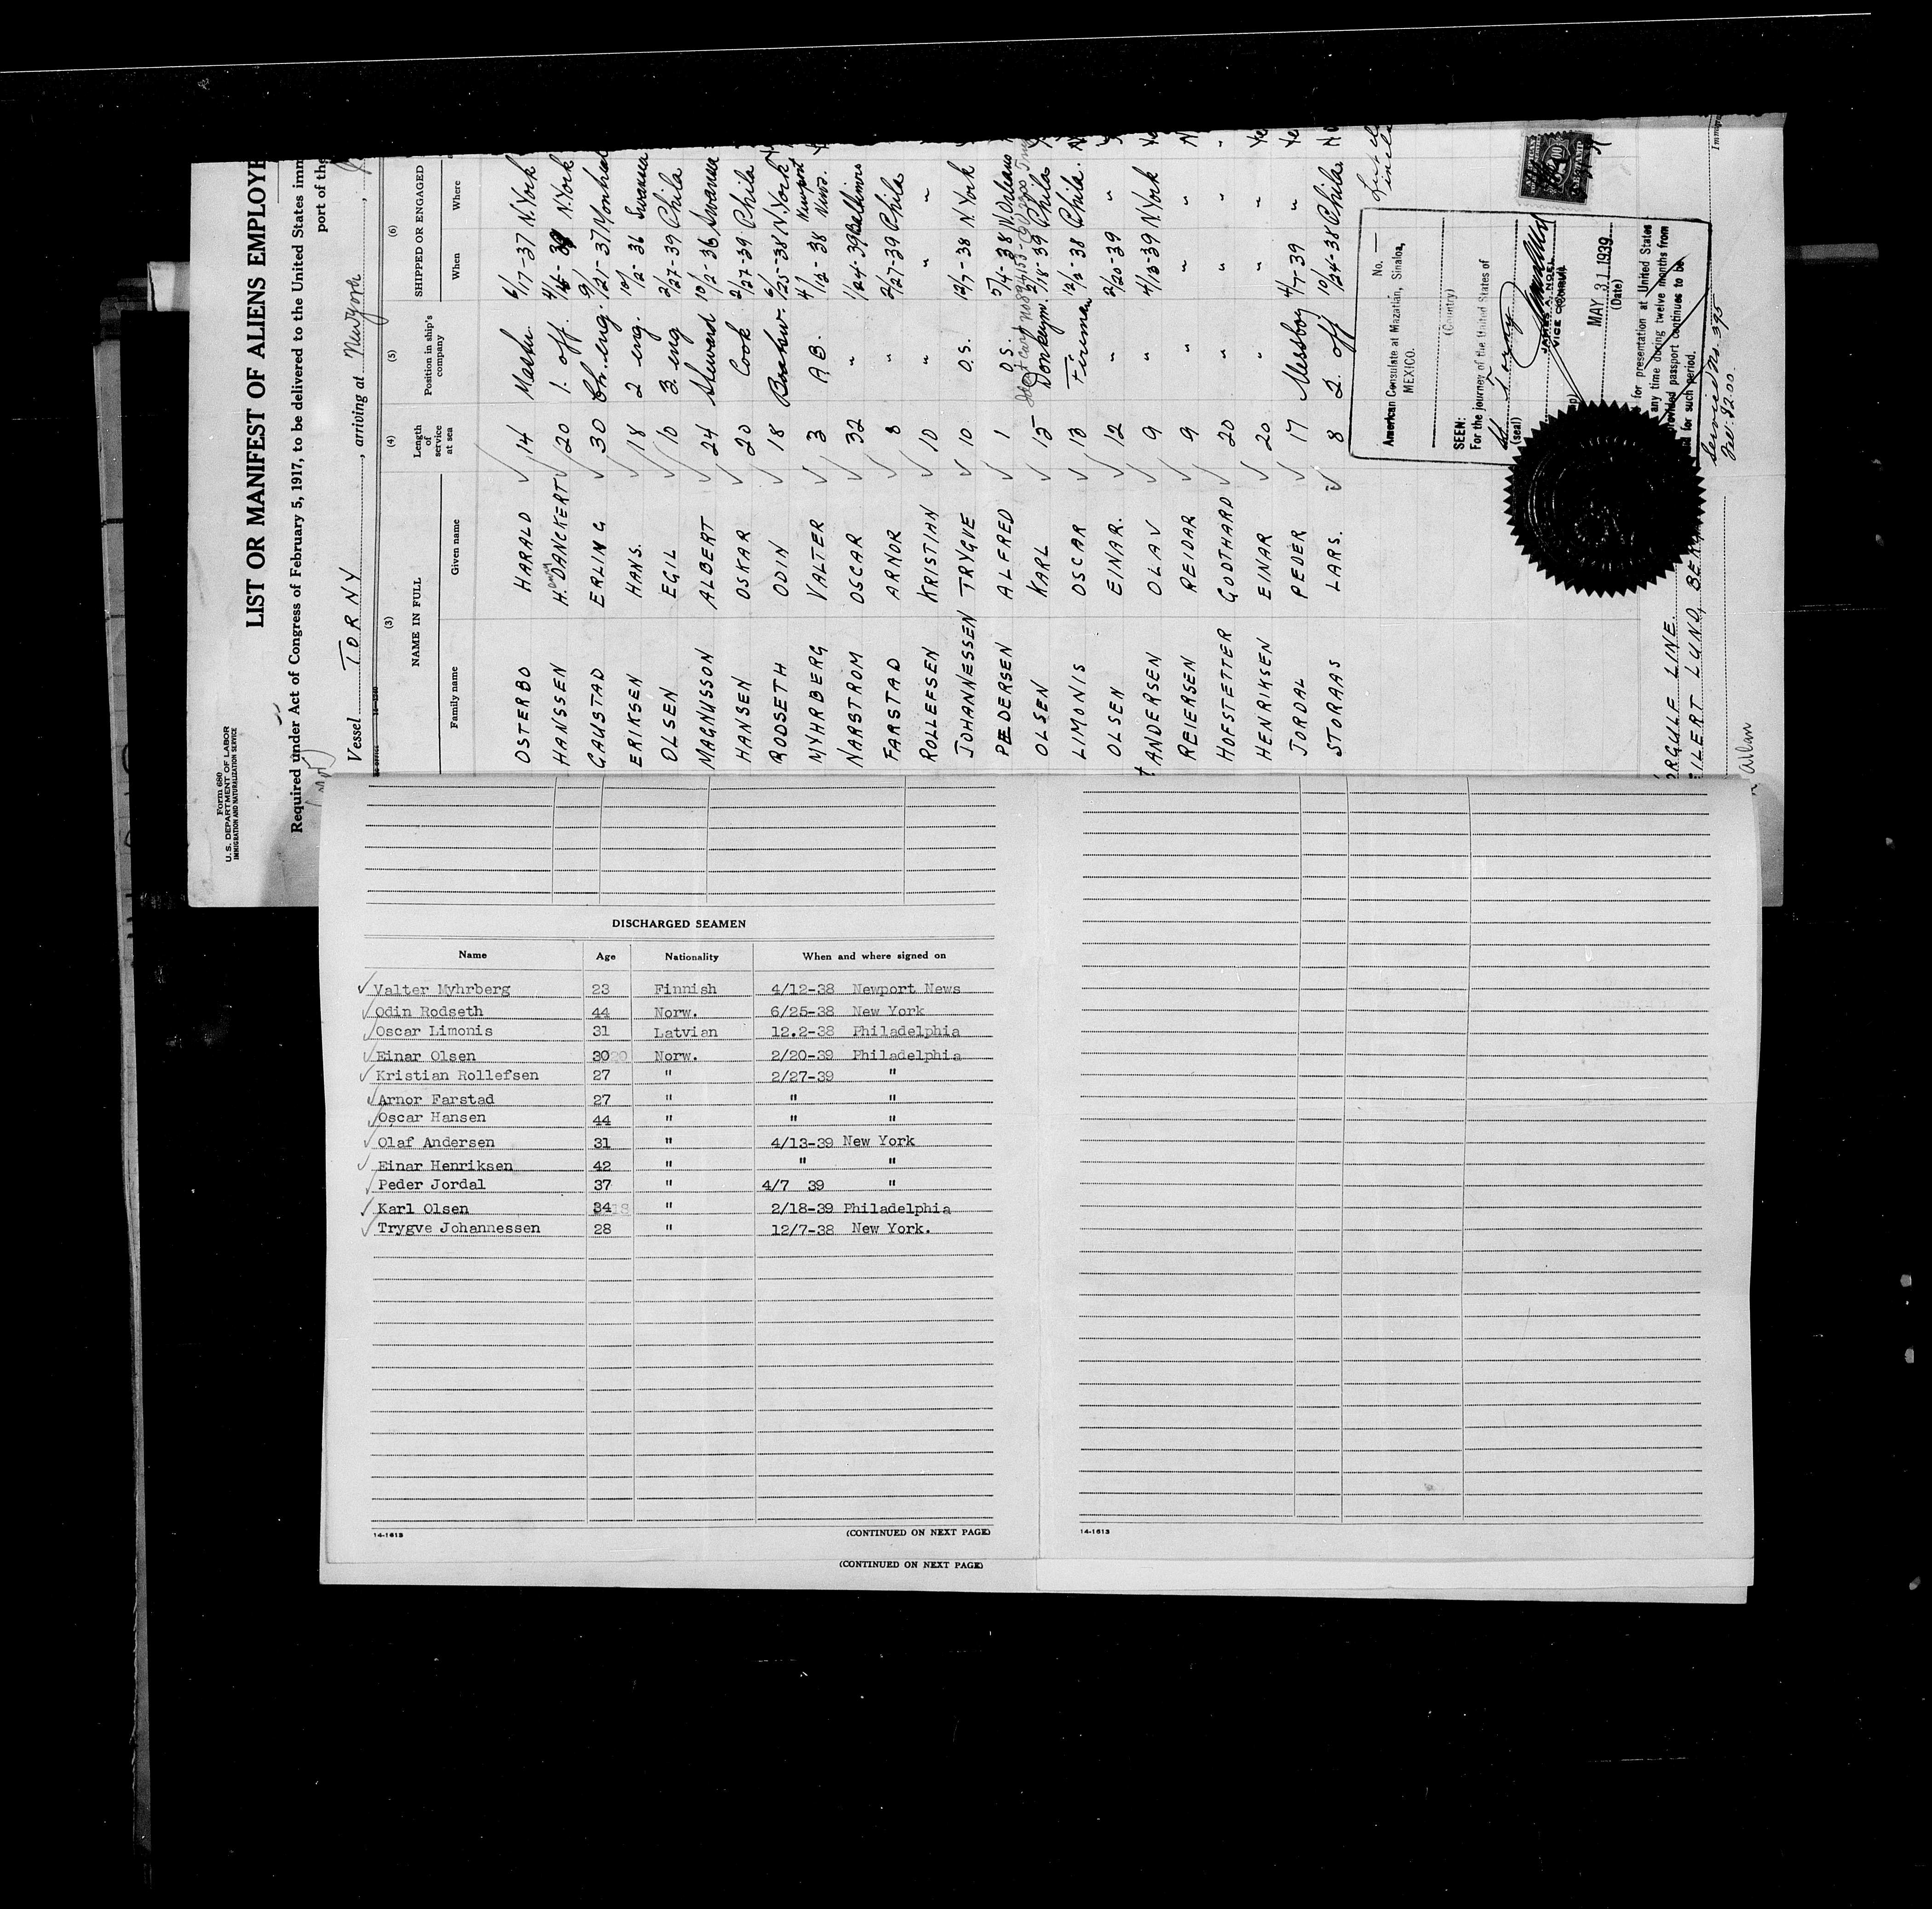 Form 680
U. S. DEPARTMENT OF LABOR
IMMIGRATION AND NATURALIZATION SERVICE
LIST OR MANIFEST OF ALIENS EMPLOYE
Required under Act of Congress of February 5, 1917, to be delivered to the United States imm
port of the
Vessel TORNY, arriving at New York,
(3) (4) (5) (6)
NAME IN FULL Length of service at sea Position in ship's company SHIPPED OR ENGAGED
Family name Given name When Where
OSTERBO HARALD 14 Master 6/17-37 N.York
HANSSEN H. DANCKERT 20 1. off. N.York
GAUSTAD ERLING 30 Ch. eng. 9/21-37
ERIKSEN HANS. 18 2 eng. 10/12-36 Swansea
OLSEN EGIL 10 3 eng 2/27-39 Phila
MAGNUSSON ALBERT 24 Steward 10/2-36 Swansea
HANSEN OSKAR 20 Cook 2/27-39 Phila
RODSETH ODIN 18 6/25-38 N.York
MYHRBERG VALTER 3 A B. 4/12-38 Newport News.
NARSTROM OSCAR 32 " 1/24-39 Baltimore
FARSTAD ARNOR 8 " 2/27-39 Phila
ROLLEFSEN KRISTIAN 10 " " "
JOHANNESSEN TRYGVE 10 O.S. 12/7-38 N.York
PEDERSEN ALFRED 1 O.S. N.Orleans
OLSEN KARL 15 Donkeym. 2/18-39 Phila
LIMONIS OSCAR 13 Fireman 12/2-38 Phila.
OLSEN EINAR. 12 " 2/20-39 "
ANDERSEN OLAV 9 " 4/13-39 N.York
REIERSEN REIDAR 9 " " "
HOFSTETTER GODTHARD 20 " " "
HENRIKSEN EINAR 20 " " "
JORDAL PEDER 17 Messboy 4/7-39 "
STORAAS LARS. 8 2. off 10/24-38 Phila.
American Consulate at Mazatlán, Sinaloa, No. —
MEXICO.
(Country)
SEEN:
For the journey of the United States of
Torny
(seal)
JAMES A. NOEL
VICE CONSUL
MAY 31 1939
(Date)
for presentation at United States
any time during twelve months from
provided passport continues to be
for such period.
Service No. 395
Fee: $2.00.
RGULF LINE.
EILERT LUND, BER
DISCHARGED SEAMEN
Name Age Nationality When and where signed on
Valter Myhrberg 23 Finnish 4/12-38 Newport News
Odin Rodseth 44 Norw. 6/25-38 New York
Oscar Limonis 31 Latvian 12.2-38 Philadelphia
Einar Olsen 30 Norw. 2/20-39 Philadelphia
Kristian Rollefsen 27 " 2/27-39 "
Arnor Farstad 27 " " "
Oscar Hansen 44 " " "
Olaf Andersen 31 " 4/13-39 New York
Einar Henriksen 42 " " "
Peder Jordal 37 " 4/7 39 "
Karl Olsen 34 " 2/18-39 Philadelphia
Trygve Johannessen 28 " 12/7-38 New York.
14-1613 (CONTINUED ON NEXT PAGE)
14-1613
(CONTINUED ON NEXT PAGE)